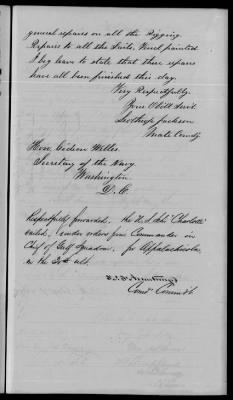 general repairs on all the Rigging
Repairs to all the Sails, Hull painted
I beg leave to state that these repairs
have all been finished this day.
Very Respectfully
Your Obdt Servt
Jackson
Mate Comdg
Hon. Gideon Welles
Secretary of the Navy
Washington
D. C.
Respectfully forwarded. The U.S. Schr "Charlotte"
sailed, under orders from Commander in
Chief of Gulf Squadron, for Appalachicola
on the ult.
Comdt